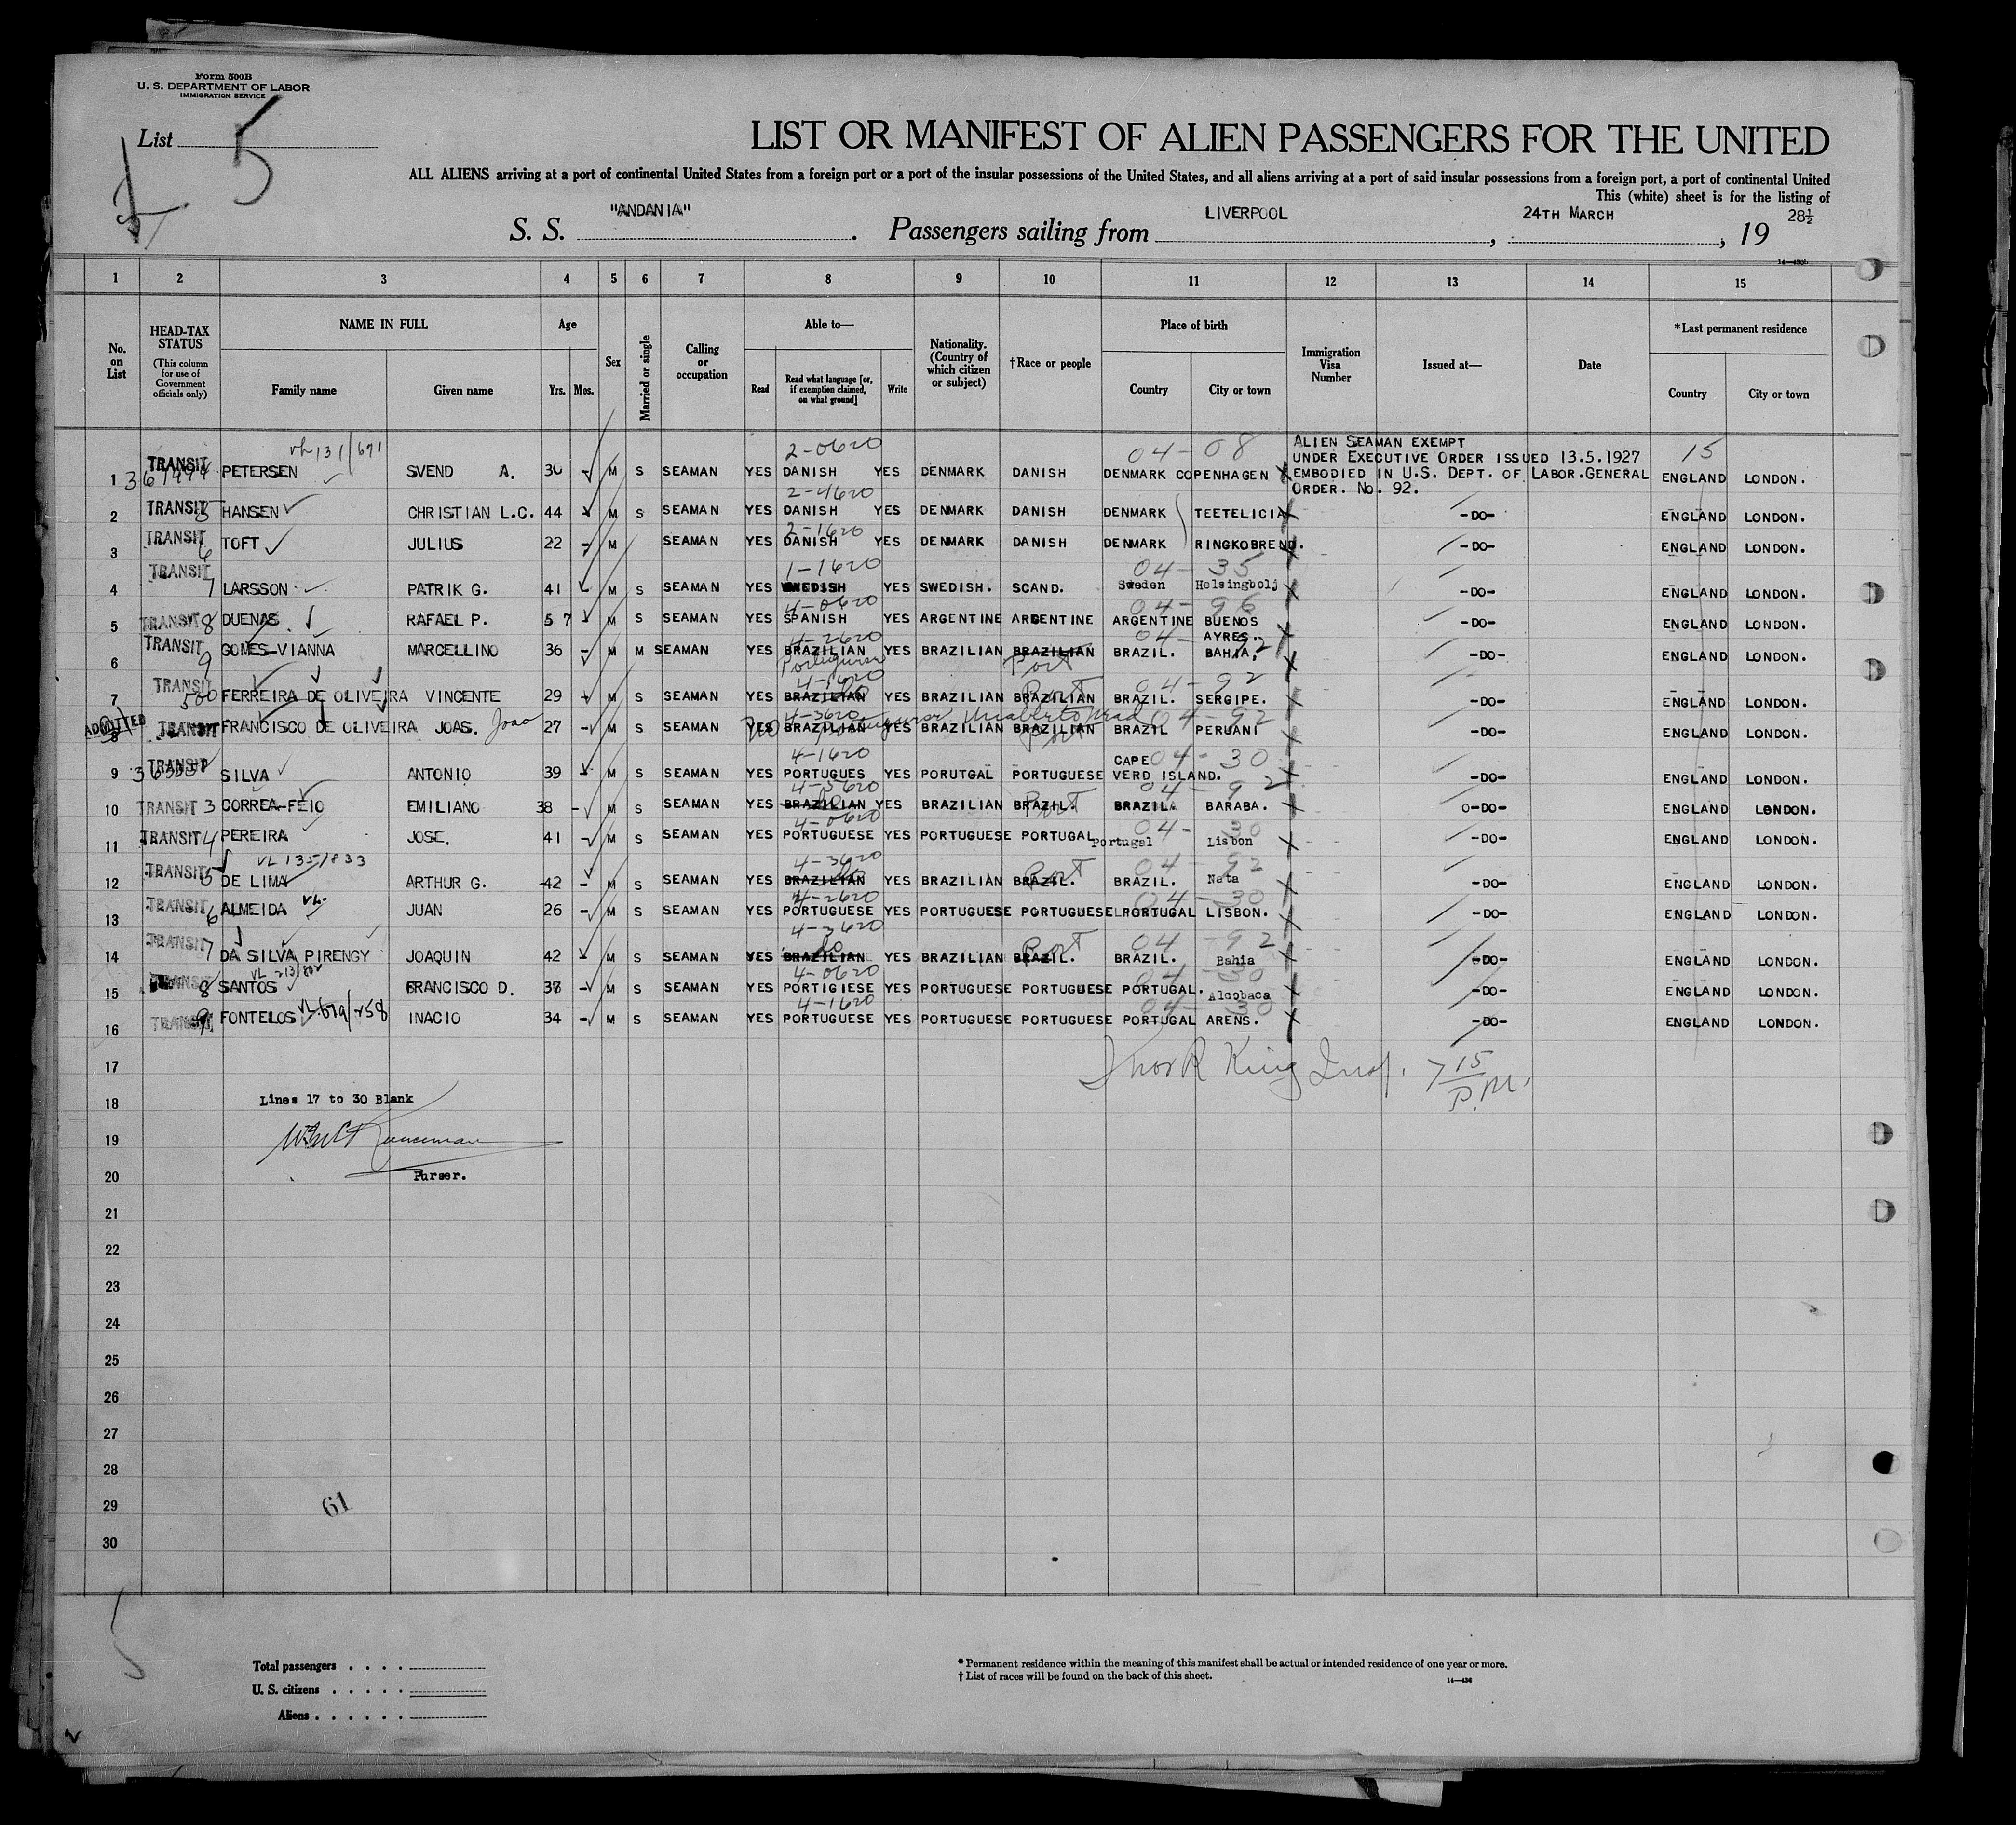 Form 500B
U. S. DEPARTMENT OF LABOR
IMMIGRATION SERVICE
List 5
LIST OR MANIFEST OF ALIEN PASSENGERS FOR THE UNITED
ALL ALIENS arriving at a port of continental United States from a foreign port or a port of the insular possessions of the United States, and all aliens arriving at a port of said insular possessions from a foreign port, a port of continental United
This (white) sheet is for the listing of
S. S. "ANDANIA". Passengers sailing from LIVERPOOL, 24TH MARCH, 19 28½
1 2 3 4 5 6 7 8 9 10 11 12 13 14 15
No. on List
HEAD-TAX STATUS (This column for use of Government officials only)
NAME IN FULL Family name Given name
Age Yrs. Mos.
Sex
Married or single
Calling or occupation
Able to— Read Read what language [or, if exemption claimed, on what ground] Write
Nationality. (Country of which citizen or subject)
†Race or people
Place of birth Country City or town
Immigration Visa Number
Issued at—
Date
*Last permanent residence Country City or town
vh 131/671 2-0620 04-08 ALIEN SEAMAN EXEMPT 15
UNDER EXECUTIVE ORDER ISSUED 13.5.1927
1 TRANSIT PETERSEN SVEND A. 30 M S SEAMAN YES DANISH YES DENMARK DANISH DENMARK COPENHAGEN EMBODIED IN U.S. DEPT. OF LABOR.GENERAL ENGLAND LONDON.
2-4620 ORDER. NO. 92.
2 TRANSIT 5 HANSEN CHRISTIAN L.C. 44 M S SEAMAN YES DANISH YES DENMARK DANISH DENMARK TEETELICIA -DO- ENGLAND LONDON.
2-1620
3 TRANSIT 6 TOFT JULIUS 22 - M SEAMAN YES DANISH YES DENMARK DANISH DENMARK RINGKOBREND. -DO- ENGLAND LONDON.
1-1620 04-35
4 TRANSIT 7 LARSSON PATRIK G. 41 M S SEAMAN YES SWEDISH YES SWEDISH. SCAND. Sweden Helsingbolj -DO- ENGLAND LONDON.
4-0620 04-96
5 TRANSIT 8 DUENAS RAFAEL P. 57 M S SEAMAN YES SPANISH YES ARGENTINE ARGENTINE ARGENTINE BUENOS AYRES. -DO- ENGLAND LONDON.
4-2620 04-92
6 TRANSIT 9 GOMES-VIANNA MARCELLINO 36 - M M SEAMAN YES BRAZILIAN YES BRAZILIAN BRAZILIAN BRAZIL. BAHIA, -DO- ENGLAND LONDON.
Portuguese Port
04-92
7 TRANSIT 500 FERREIRA DE OLIVEIRA VINCENTE 29 M S SEAMAN YES BRAZILIAN YES BRAZILIAN BRAZILIAN Port BRAZIL. SERGIPE. -DO- ENGLAND LONDON.
4-3620 04-92
8 ADMITTED TRANSIT FRANCISCO DE OLIVEIRA JOAS. Joao 27 - M S SEAMAN YES BRAZILIAN YES BRAZILIAN BRAZILIAN Port BRAZIL PERUANI -DO- ENGLAND LONDON.
4-1620 04-30
9 TRANSIT SILVA ANTONIO 39 M S SEAMAN YES PORTUGUES YES PORUTGAL PORTUGUESE CAPE VERD ISLAND. -DO- ENGLAND LONDON.
4-3620 04-92
10 TRANSIT 3 CORREA-FEIO EMILIANO 38 - M S SEAMAN YES BRAZILIAN YES BRAZILIAN BRAZIL. Port BRAZIL. BARABA. -DO- ENGLAND LONDON.
4-0620 04-30
11 TRANSIT 4 PEREIRA JOSE. 41 - M S SEAMAN YES PORTUGUESE YES PORTUGUESE PORTUGAL Portugal Lisbon -DO- ENGLAND LONDON.
VL 135/833 4-3620 04-92
12 TRANSIT 5 DE LIMA ARTHUR G. 42 - M S SEAMAN YES BRAZILIAN do YES BRAZILIAN BRAZIL. Port BRAZIL. Nata -DO- ENGLAND LONDON.
VL. 4-2620 04-30
13 TRANSIT 6 ALMEIDA JUAN 26 - M S SEAMAN YES PORTUGUESE YES PORTUGUESE PORTUGUESE PORTUGAL LISBON. -DO- ENGLAND LONDON.
4-3620 04-92
14 TRANSIT 7 DA SILVA PIRENGY JOAQUIN 42 M S SEAMAN YES BRAZILIAN do YES BRAZILIAN BRAZIL. Port BRAZIL. Bahia -DO- ENGLAND LONDON.
4-0620 04-30
15 TRANSIT 8 SANTOS FRANCISCO D. 38 M S SEAMAN YES PORTIGIESE YES PORTUGUESE PORTUGUESE PORTUGAL. Alcobaca -DO- ENGLAND LONDON.
4-1620 04-30
16 TRANSIT 9 FONTELOS INACIO 34 - M S SEAMAN YES PORTUGUESE YES PORTUGUESE PORTUGUESE PORTUGAL ARENS. -DO- ENGLAND LONDON.
17 R King Insp. 7 15 P.M.
18 Lines 17 to 30 Blank
19
20 Purser.
21
22
23
24
25
26
27
28
29 61
30
Total passengers . . . .
U. S. citizens . . . . .
Aliens . . . . . .
* Permanent residence within the meaning of this manifest shall be actual or intended residence of one year or more.
† List of races will be found on the back of this sheet.
14—436